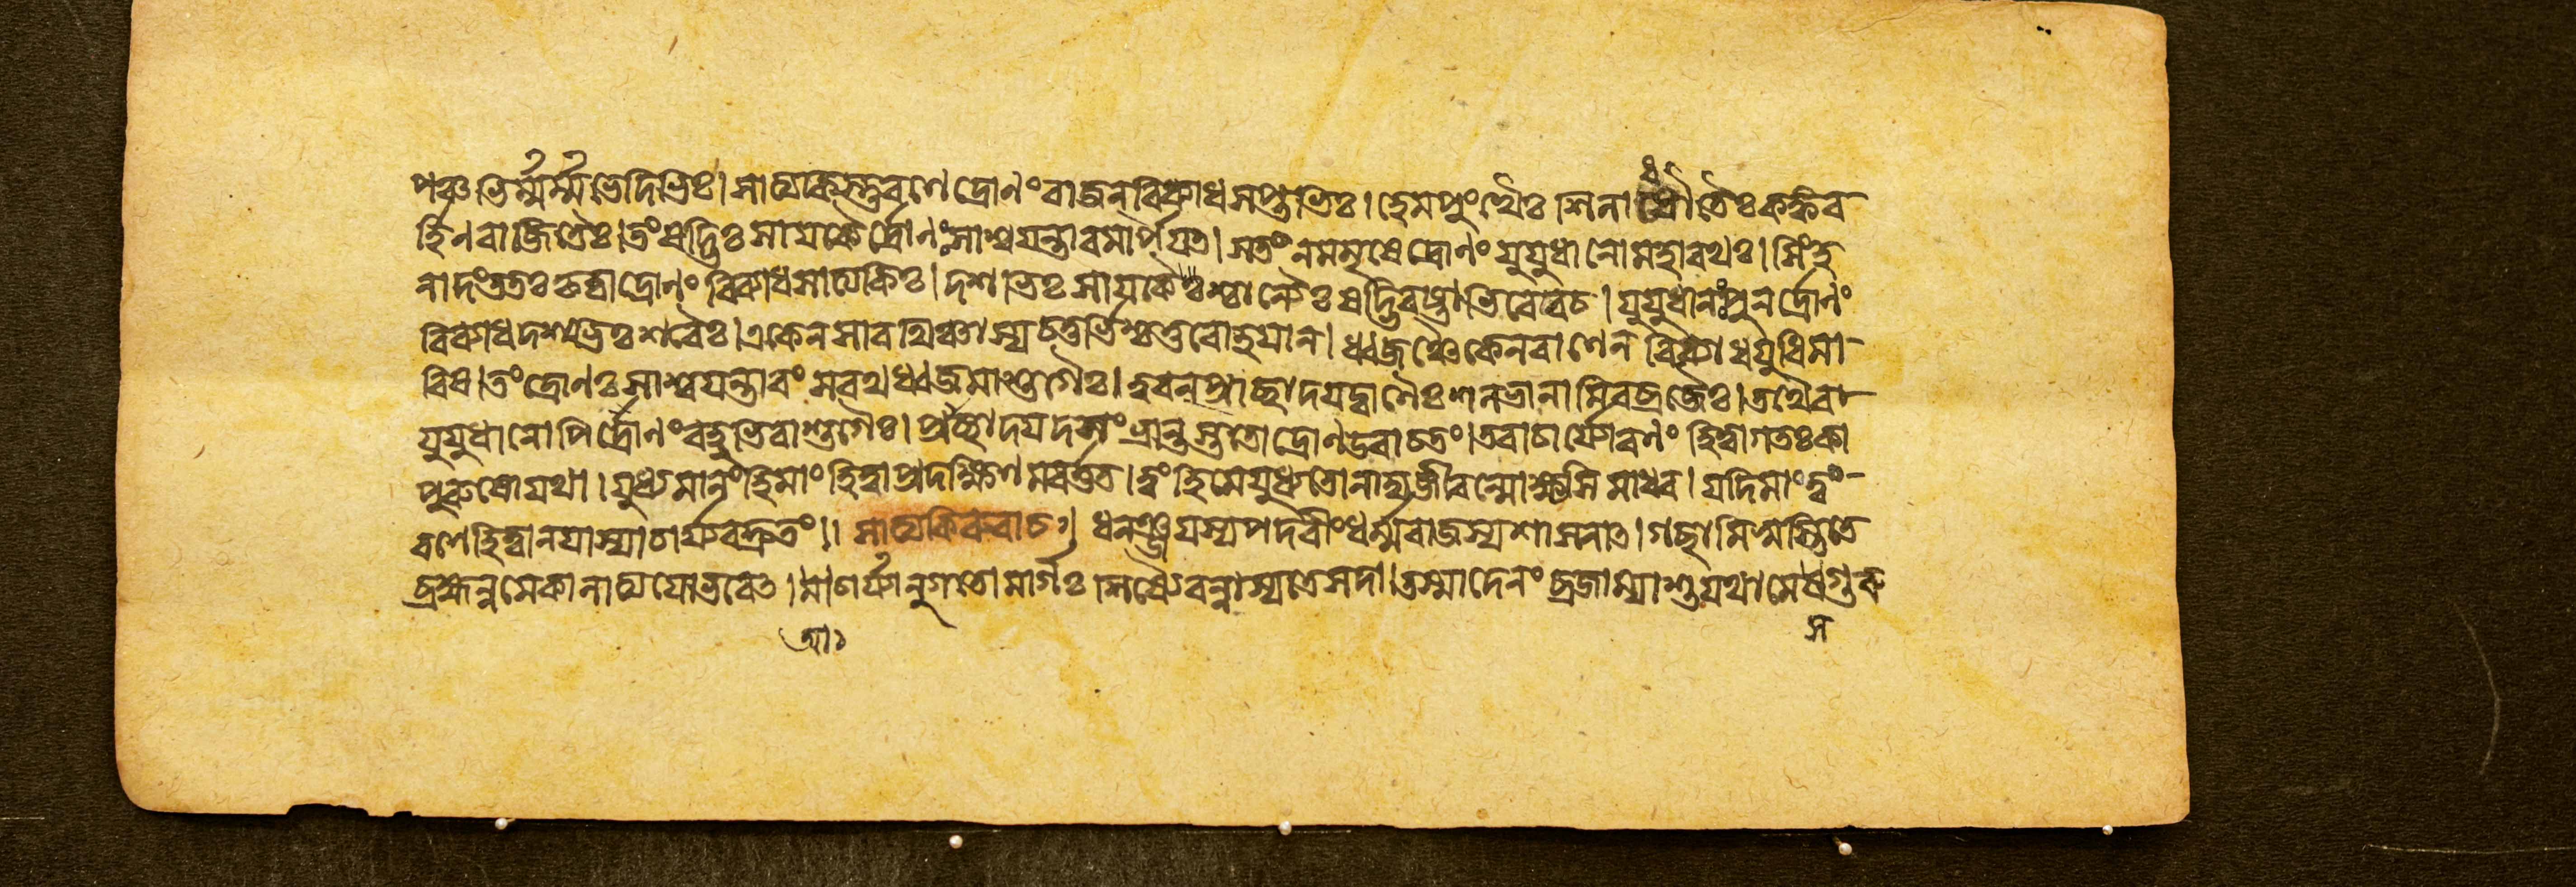 পঞ্চভির্ম্মর্ম্মভেদিভিঃ। সাত্যকিস্তুরণে দ্রোণং রাজন্ বিব্যাধ সপ্তভিঃ। হেমপুংখৈঃ শিলাধৌতৈঃ কঙ্কব
র্হিনবাজিতৈঃ। তং ষড্ভিঃ সায়কৈর্দ্রোণঃ সাশ্বযন্তারমার্পযত্। সতং নমমৃষে দ্রোণং যুযুধানো মহারথঃ। সিংহ
নাদং ততঃ কৃত্বা দ্রোণং বিব্যাধ সাত্যকিঃ। দশভিঃ সায়কৈশ্চান্যৈঃ ষড্ভিরষ্টাভিরেবচ। যুযুধানঃ পুনর্দ্রোণং
বিব্যাধ দশভিঃ শরৈঃ। একেন সারথিঞ্চাস্য চতুর্ভিশ্চতুরোহয়ান্। ধ্বজমেকেন বাণেন বিব্যাধ যুধি মা
রিষ। তং দ্রোণঃ সাশ্বযন্তারং সরথধ্বজমাশুগৈঃ। ত্বরন্ প্রাচ্ছাদযদ্বাণৈঃ শলভানামিবব্রজৈঃ। তথৈব
যুযুধানোপি দ্রোণং বহুভিরাশুগৈঃ। প্রাচ্ছাদযদসং ভ্রান্তস্ততো দ্রোণউবাচতং। তবাচার্য্যোরণং হিত্বাগতঃ কা
পুরুষো যথা। যুধ্যমানং হি মাং হিত্বা প্রদক্ষিণমবর্ত্তত। ত্বং হি মে যুধ্যতো নাদ্য জীবন্মোক্ষ্যসি মাধব। যদি মাং ত্বং
রণে হিত্বা নযাস্যাচার্য্যবদ্দ্রুতং।। সাত্যকিরুবাচ।। ধনঞ্জয়স্য পদবীং ধর্ম্মরাজস্য শাসনাত্। গচ্ছামি স্বস্তিতে
ব্রহ্মন্নমেকালাত্যযোভবেত্। আচার্য্যানুগতোমার্গঃ শিষ্যৈরন্বাস্যতে সদা। তস্মাদেবং ব্রজাম্যাশু যথা মে ষ গুরু
আঃ স